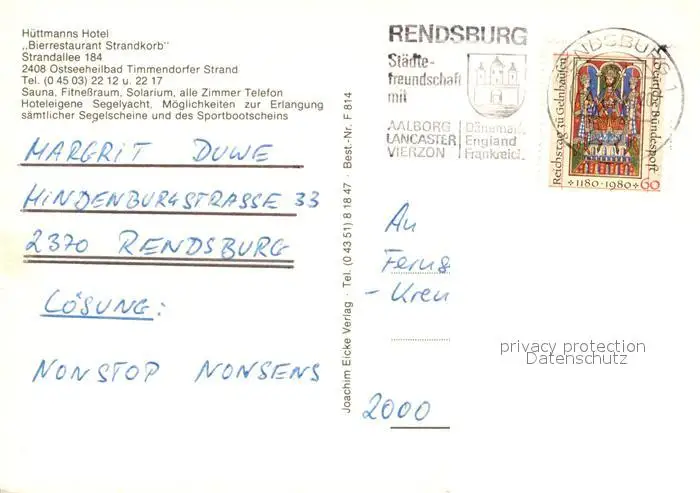 Hüttmanns Hotel
„Bierrestaurant Strandkorb"
Strandallee 184
2408 Ostseeheilbad Timmendorfer Strand
Tel. (0 45 03) 22 12 u. 22 17
Sauna, Fitneßraum, Solarium, alle Zimmer Telefon
Hoteleigene Segelyacht, Möglichkeiten zur Erlangung
sämtlicher Segelscheine und des Sportbootscheins
MARGRIT DUWE
HINDENBURGSTRASSE 33
2370 RENDSBURG
LÖSUNG:
NONSTOP NONSENS
Joachim Eicke Verlag · Tel. (0 43 51) 8 18 47 · Best.-Nr. F 814
RENDSBURG
Städte-
freundschaft
mit
AALBORG Dänemark
LANCASTER England
VIERZON Frankreich
RENDSBURG 1
Reichstag zu Gelnhausen
Deutsche Bundespost
1180-1980 60
An
Ferns
-Kreu
2000
privacy protection
Datenschutz